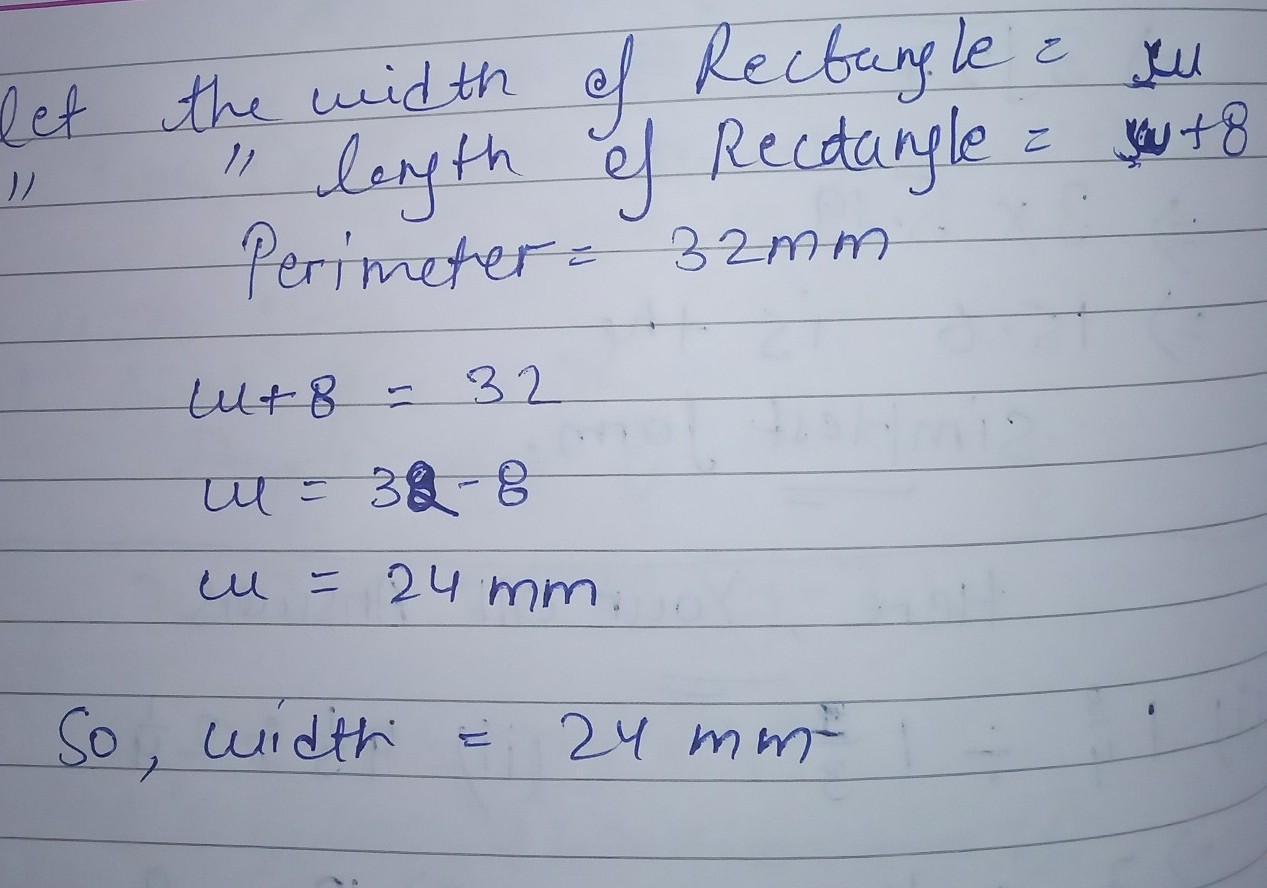 let the width of Rectangle = w
" " length of Rectangle = w+8
Perimeter = 32mm
w+8 = 32
w = 32-8
w = 24 mm.
So, width = 24 mm